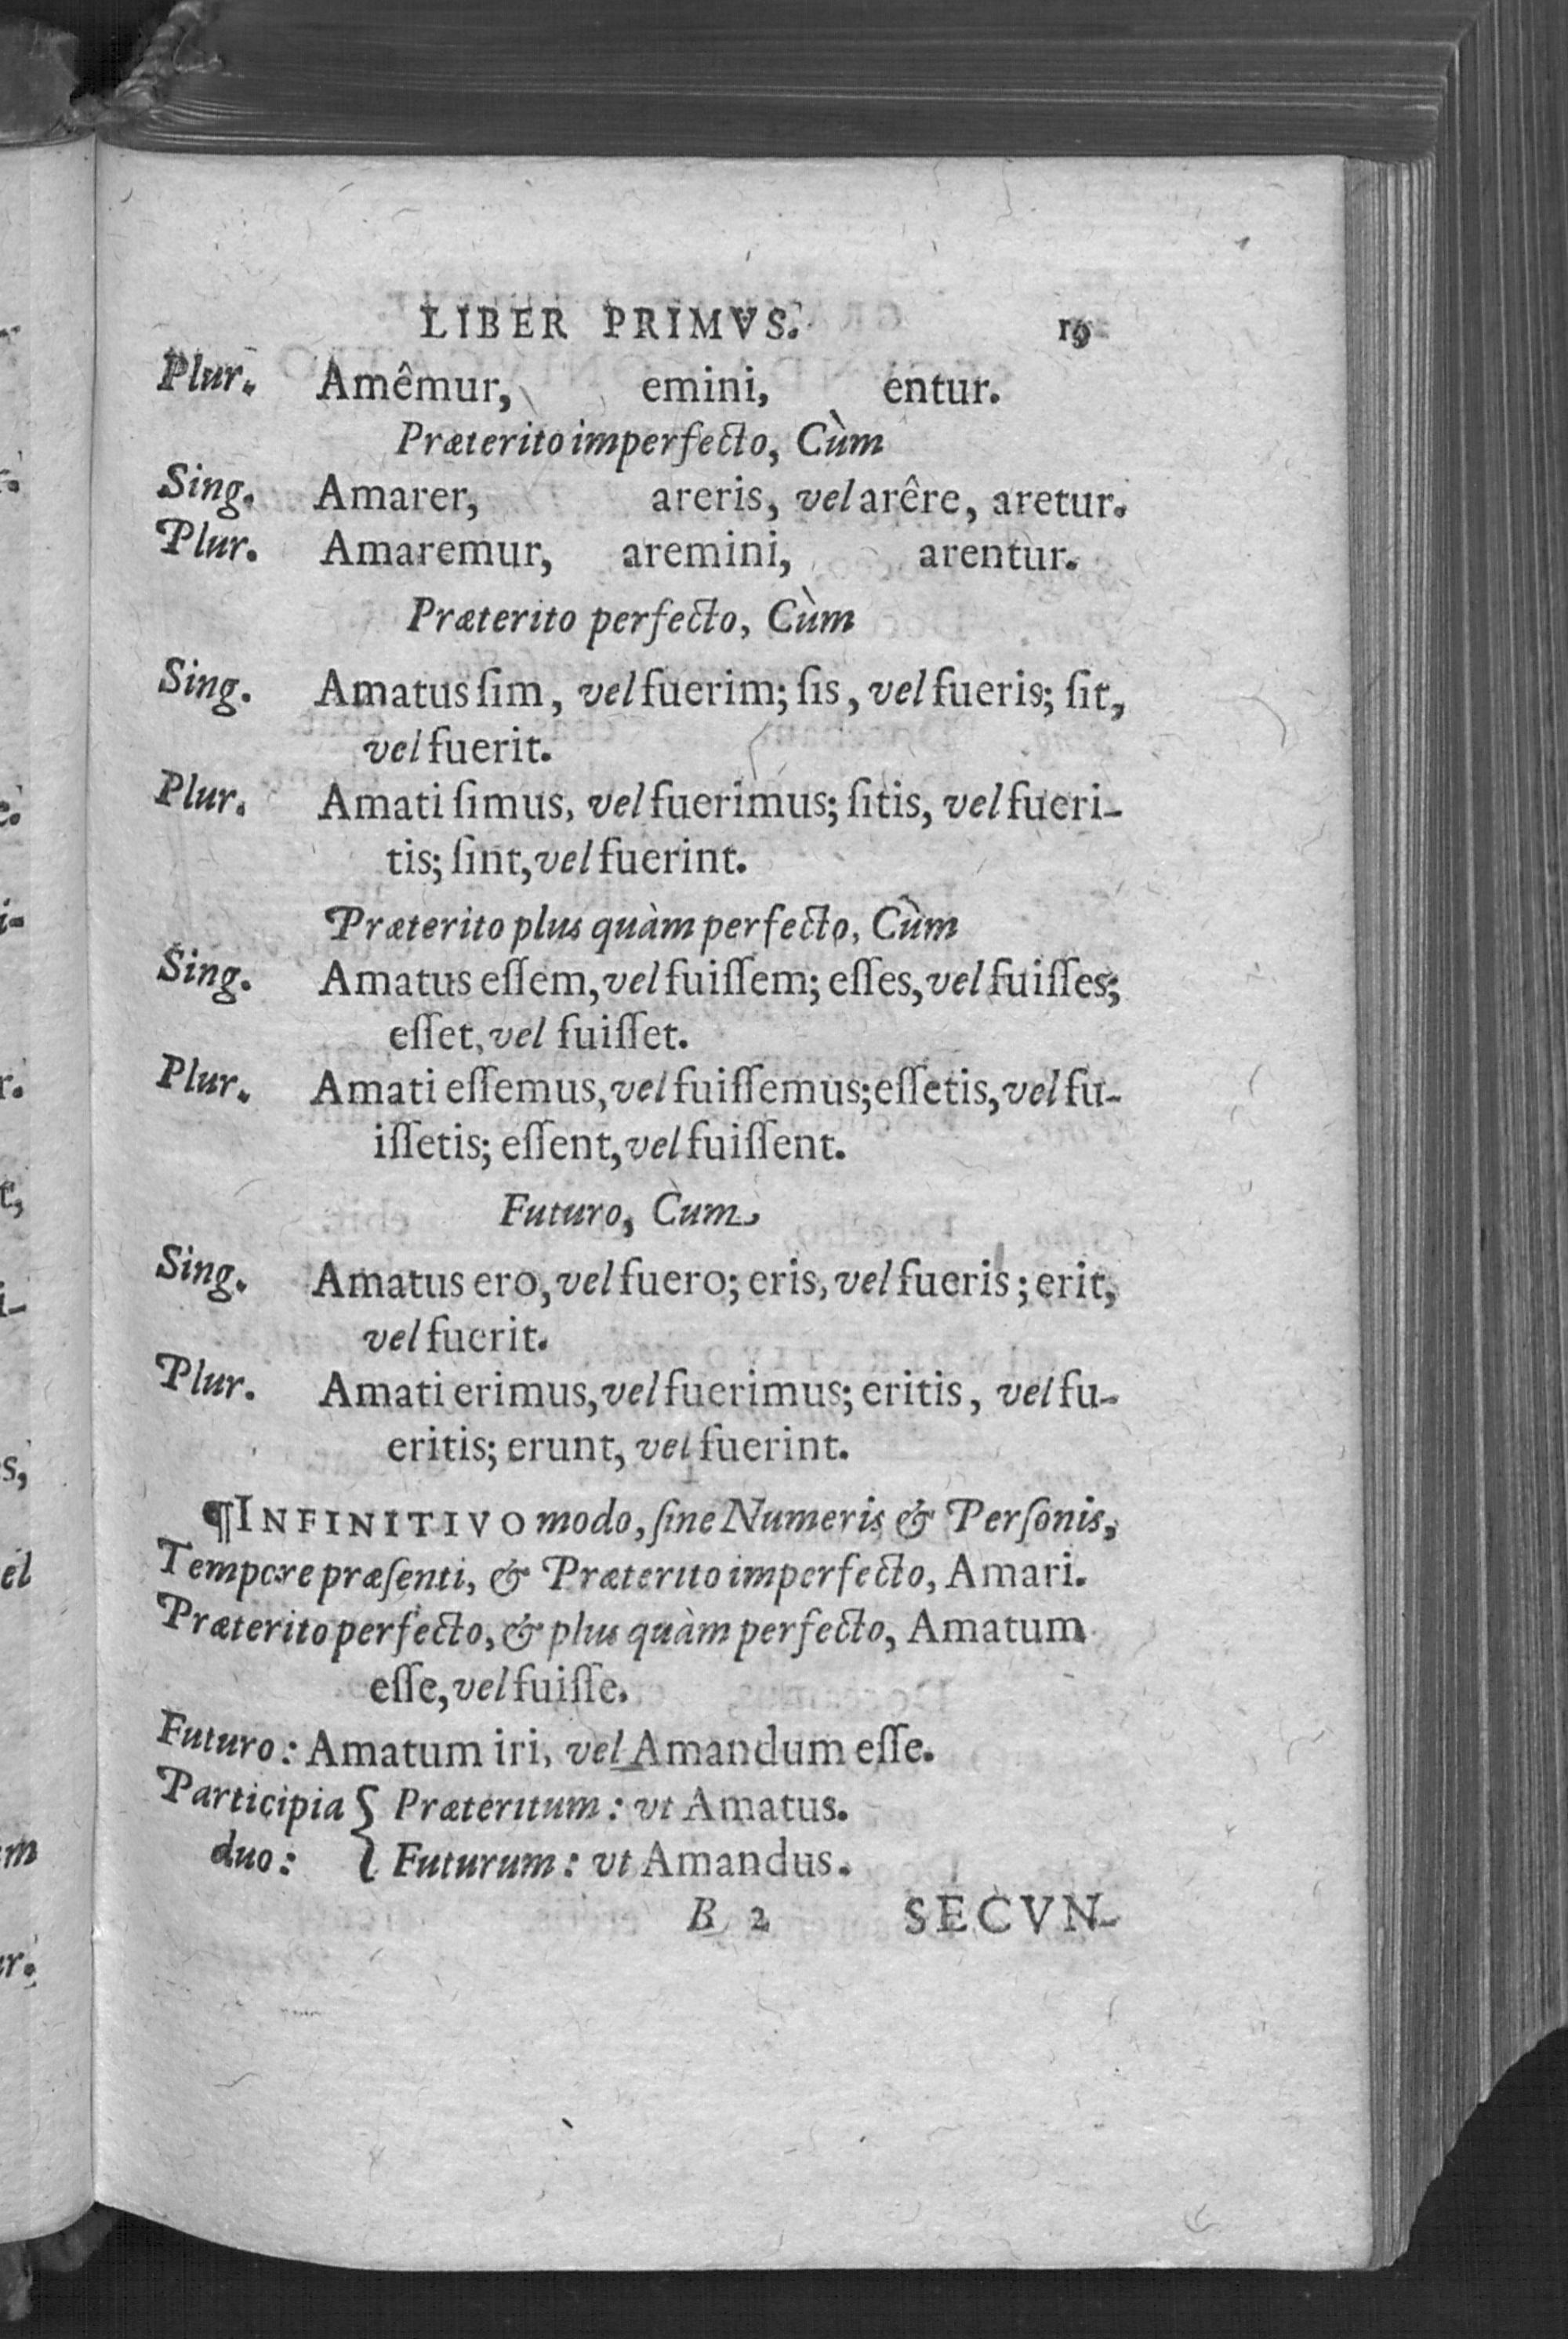 LIBER PRIMVS. 19
Plur. Amêmur, emini, entur.
Præterito imperfecto, Cùm
Sing. Amarer, areris, vel arêre, aretur.
Plur. Amaremur, aremini, arentur.
Præterito perfecto, Cùm
Sing. Amatus ſim, vel fuerim; ſis, vel fueris; ſit,
vel fuerit.
Plur. Amati ſimus, vel fuerimus; ſitis, vel fueri-
tis; ſint, vel fuerint.
Præterito plus quàm perfecto, Cùm
Sing. Amatus eſſem, vel fuiſſem; eſſes, vel fuiſſes;
eſſet, vel fuiſſet.
Plur. Amati eſſemus, vel fuiſſemus; eſſetis, vel fu-
iſſetis; eſſent, vel fuiſſent.
Futuro, Cùm
Sing. Amatus ero, vel fuero; eris, vel fueris; erit,
vel fuerit.
Plur. Amati erimus, vel fuerimus; eritis, vel fu-
eritis; erunt, vel fuerint.
¶INFINITIVO modo, ſine Numeris & Perſonis,
Tempore præſenti, & Præterito imperfecto, Amari.
Præterito perfecto, & plus quàm perfecto, Amatum
eſſe, vel fuiſſe.
Futuro: Amatum iri, vel Amandum eſſe.
Participia { Præteritum: vt Amatus.
duo: Futurum: vt Amandus.
B 2 SECVN-